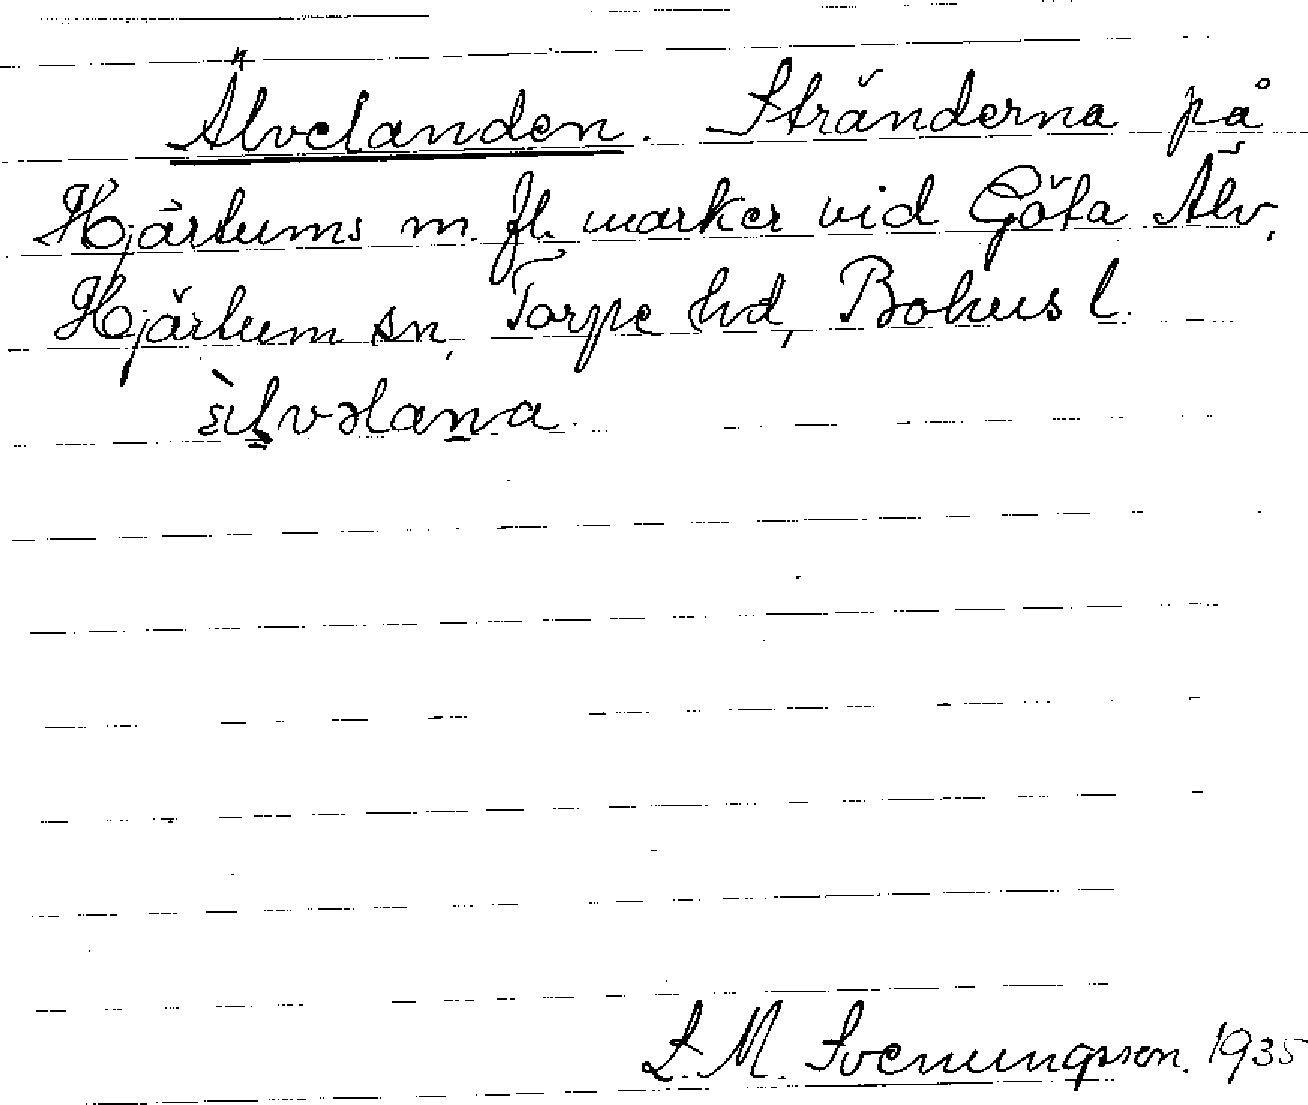 Älvelanden. Stränderna på
Hjärtums m. fl. marker vid Göta Älv,
Hjärtum sn, Torpe hd, Bohus l.
L. M. Svenungsson. 1935